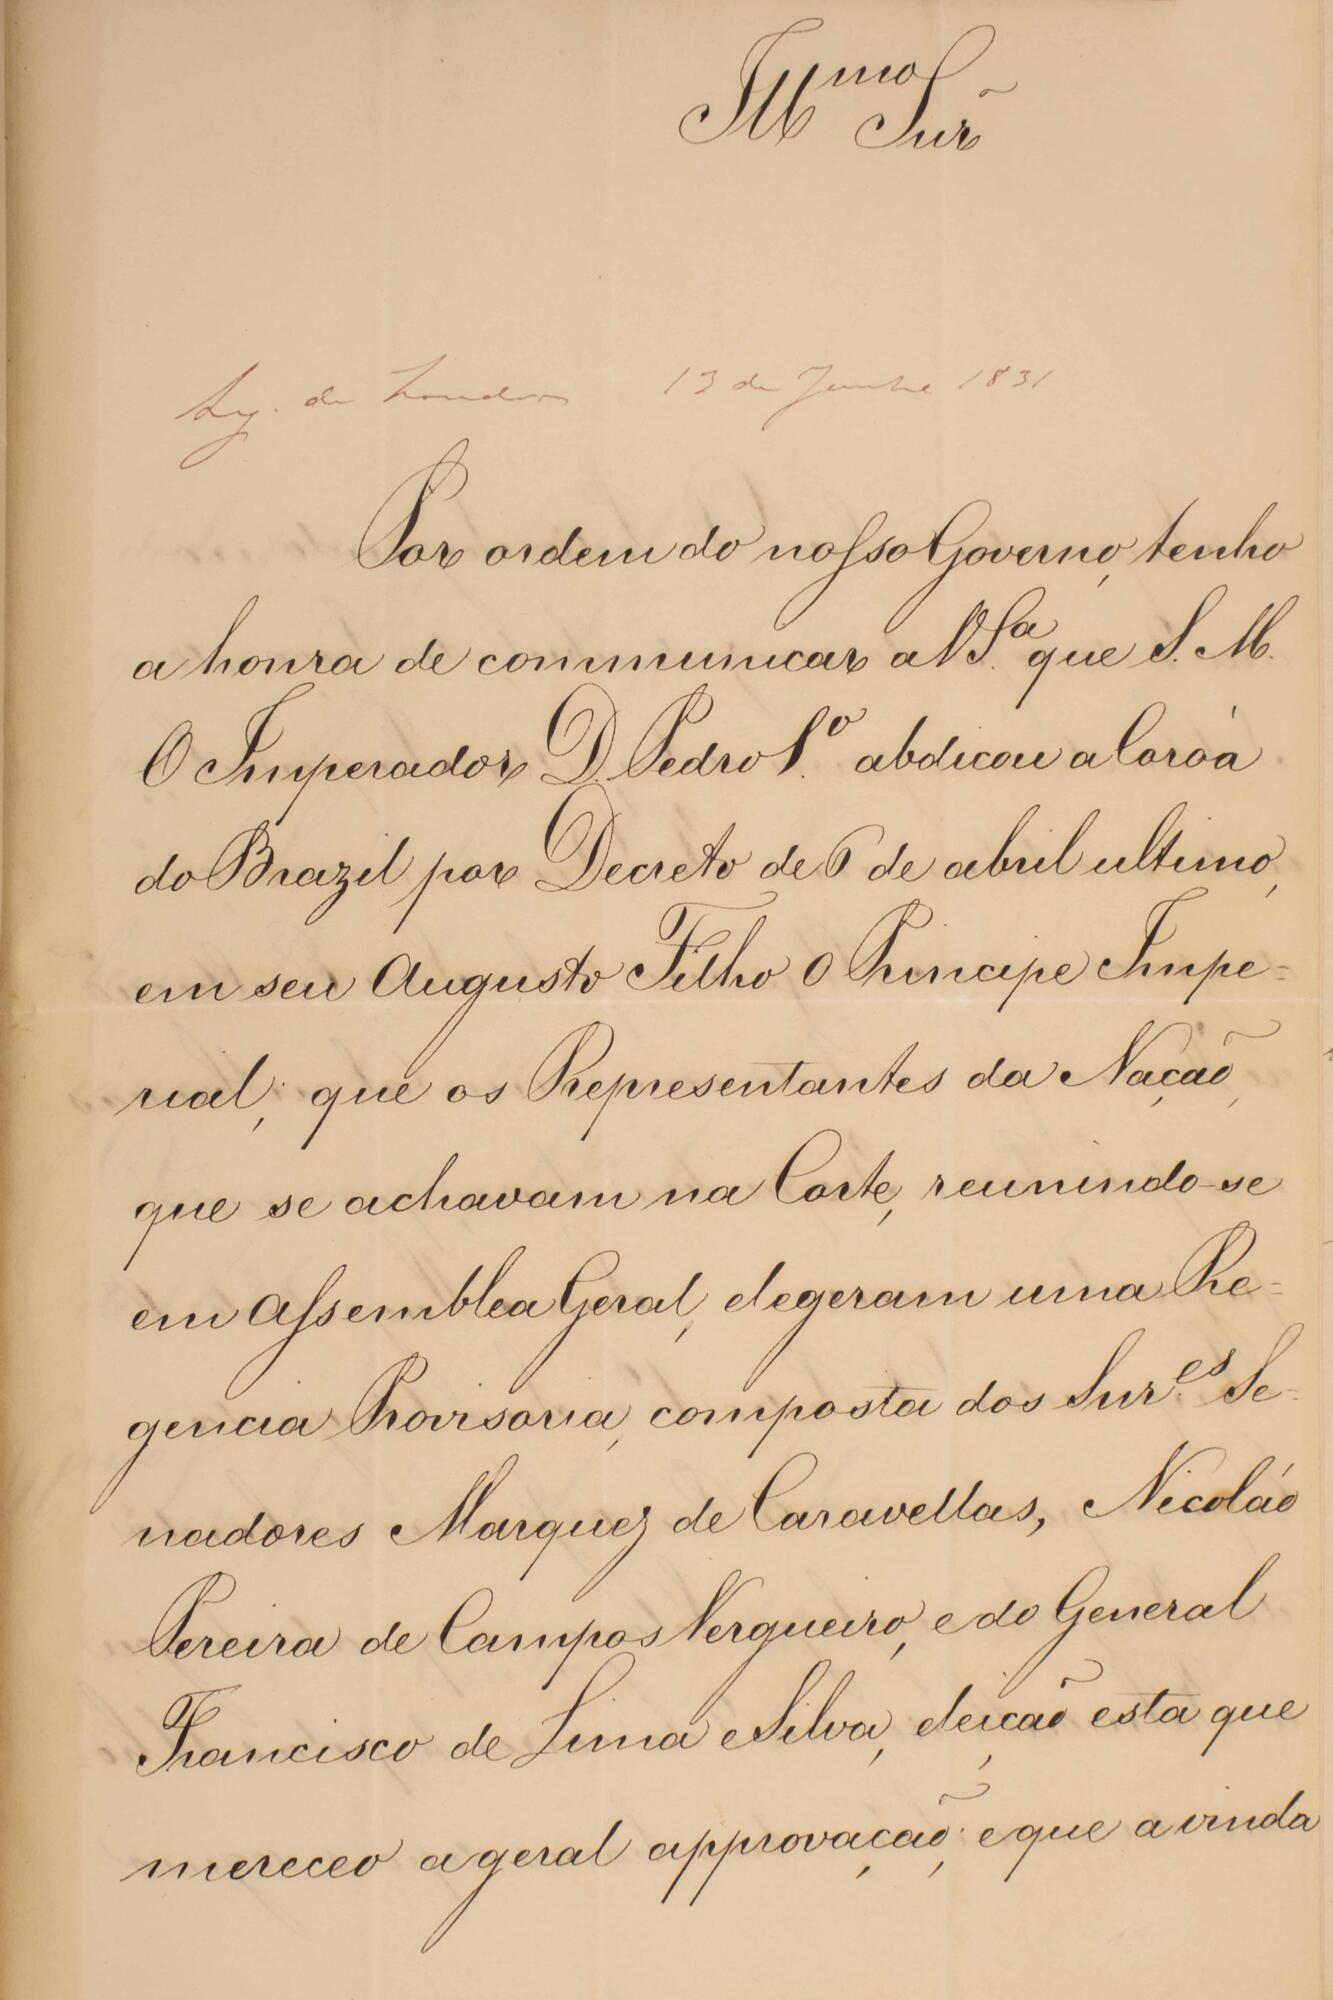 Illmo Snr̃
Leg. de Londres 13 de Junho 1831
Por ordem do nosso Governo, tenho
a honra de communicar a V.S.a que S. M.
O Imperador D. Pedro 1.o abdicou a Coróa
do Brazil por Decreto de 6 de abril ultimo,
em seu Augusto Filho O Principe Impe=
rial; que os Representantes da Nação,
que se achavam na Corte, reunindo-se
em Assemblea Geral, elegeram uma Re=
gencia Provisoria, composta dos Snr.es Se=
nadores Marquez de Caravellas, Nicoláo
Pereira de Campos Vergueiro, e do General
Francisco de Lima e Silva, eleição esta que
mereceo a geral approvação; e que a vinda